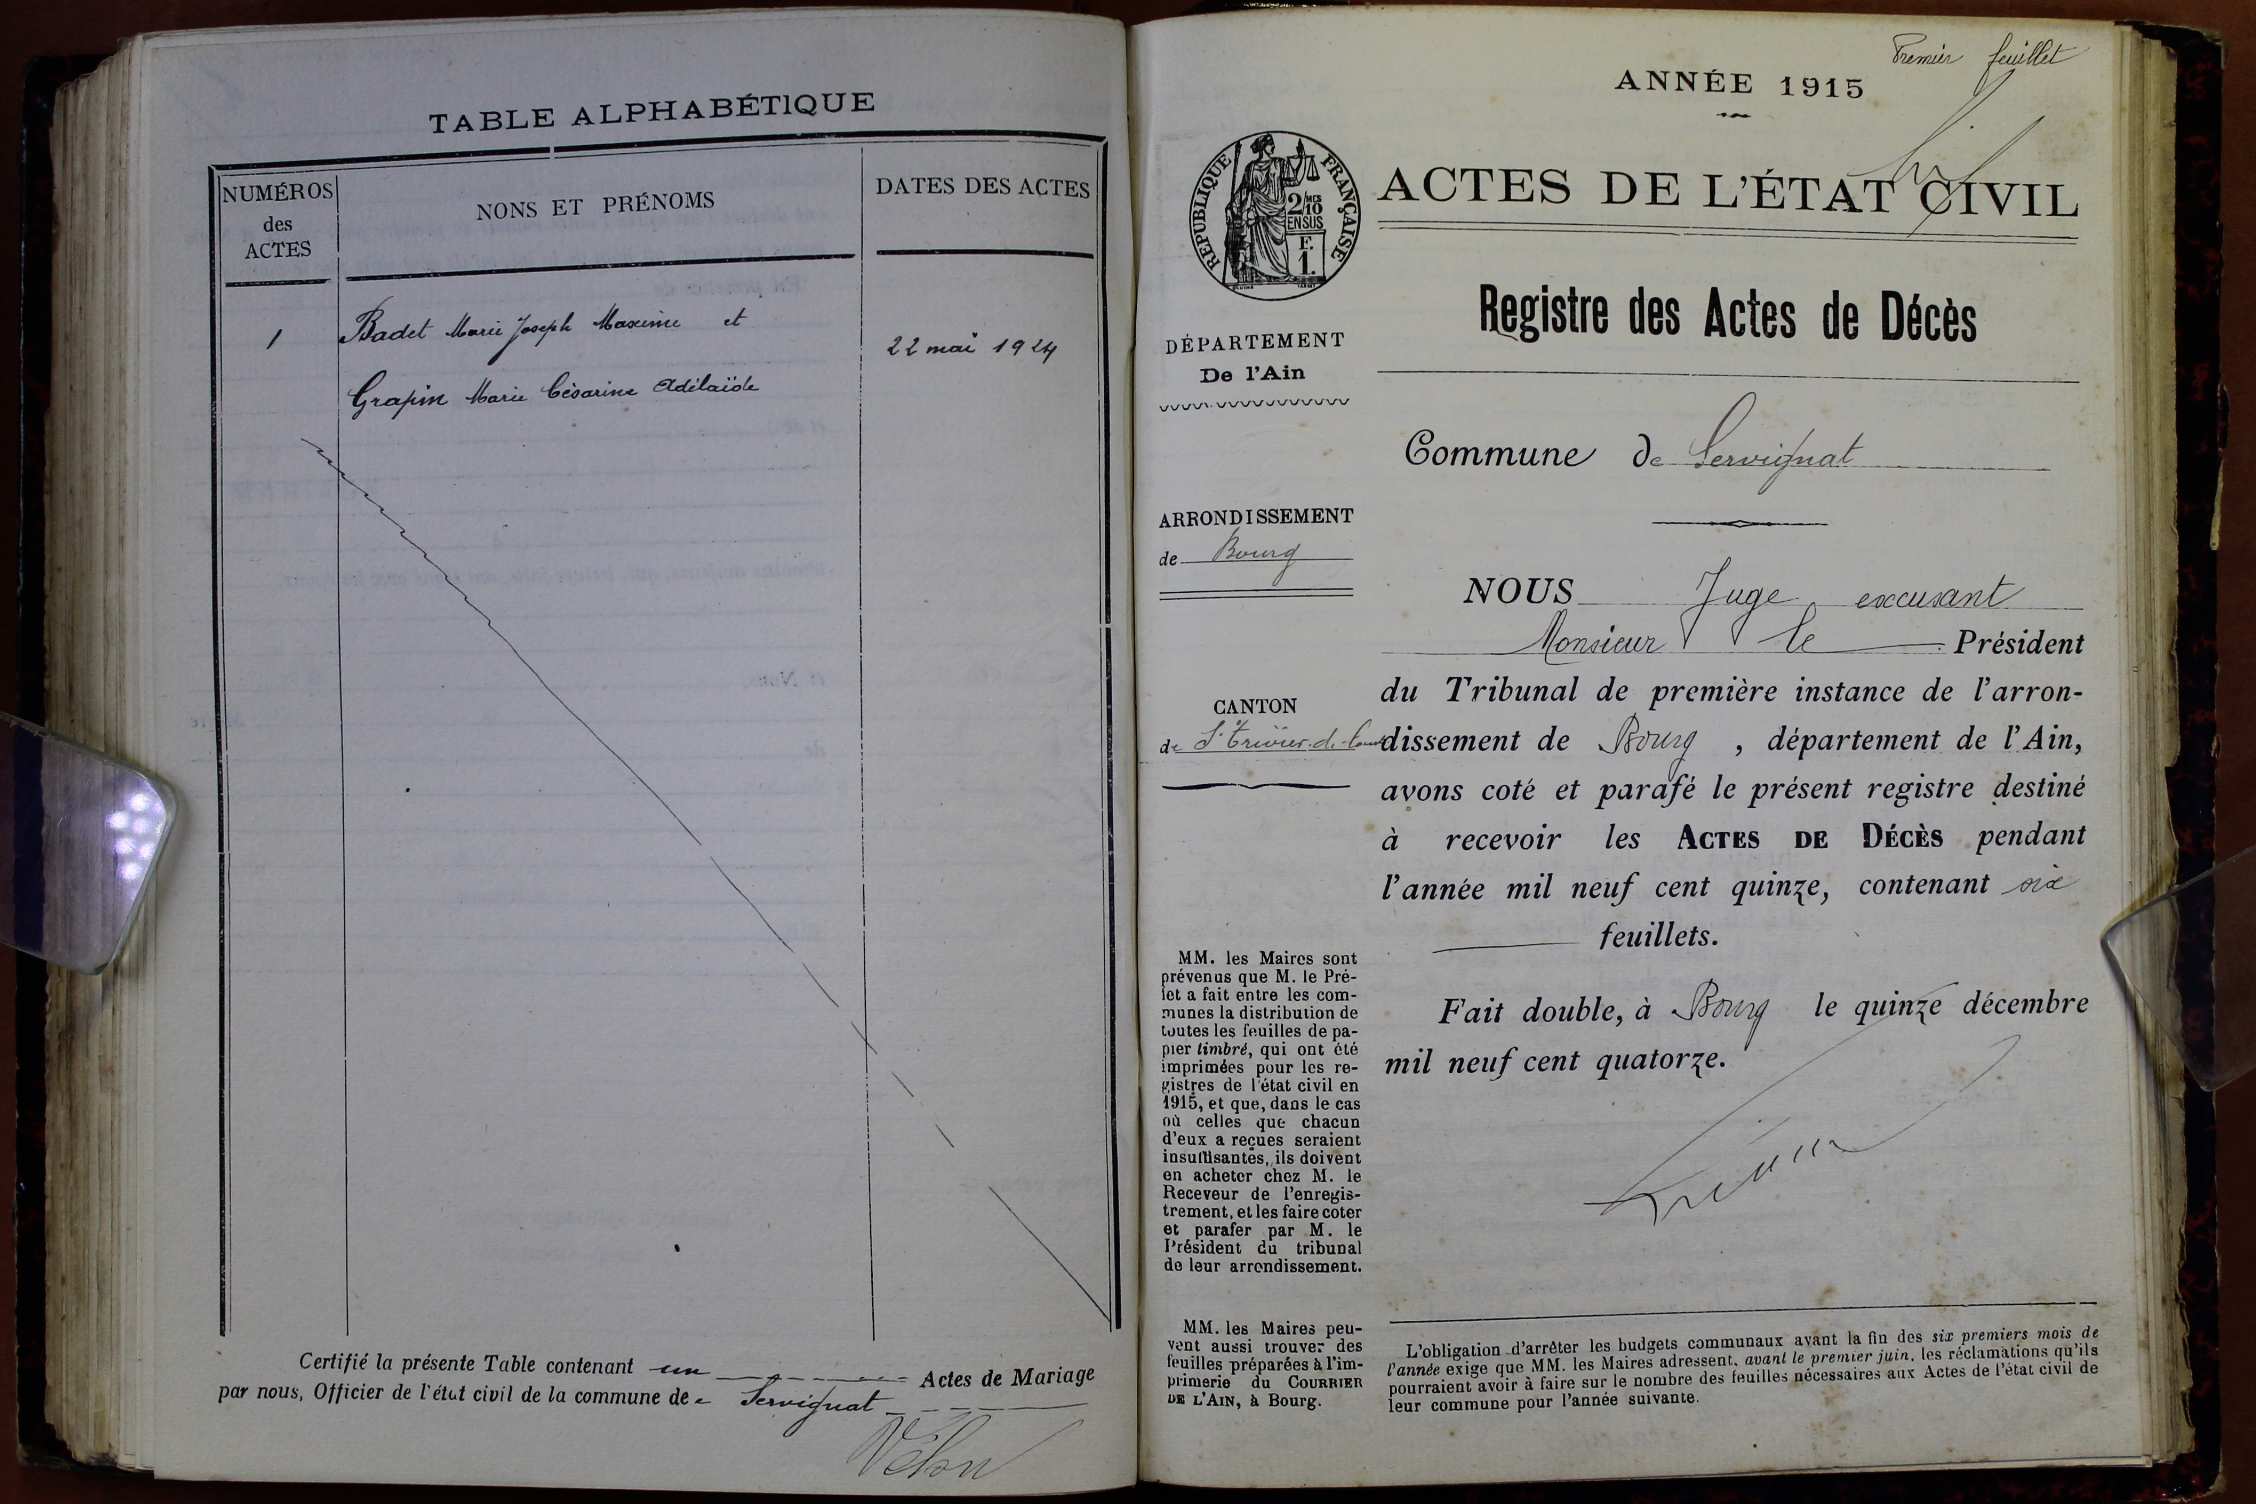 TABLE ALPHABÉTIQUE
NUMÉROS
des
ACTES
NONS ET PRÉNOMS
DATES DES ACTES
1
Badet Marie Joseph Maxime et
22 mai 1924
Grapin Marie Césarine Adélaïde
Certifié la présente Table contenant un Actes de Mariage
par nous, Officier de l'état civil de la commune de Servignat
Premier feuillet
ANNÉE 1915
RÉPUBLIQUE FRANÇAISE
2/10
MES
EN SUS
F.
1.
ACTES DE L'ÉTAT CIVIL
Registre des Actes de Décès
DÉPARTEMENT
De l'Ain
Commune de Servignat
ARRONDISSEMENT
de Bourg
CANTON
de St Trivier-de-Courtes
NOUS Juge excusant
Monsieur le Président
du Tribunal de première instance de l'arron-
dissement de Bourg, département de l'Ain,
avons coté et parafé le présent registre destiné
à recevoir les ACTES DE DÉCÈS pendant
l'année mil neuf cent quinze, contenant six
feuillets.
Fait double, à Bourg le quinze décembre
mil neuf cent quatorze.
MM. les Maires sont
prévenus que M. le Pré-
fet a fait entre les com-
munes la distribution de
toutes les feuilles de pa-
pier timbré, qui ont été
imprimées pour les re-
gistres de l'état civil en
1915, et que, dans le cas
où celles que chacun
d'eux a reçues seraient
insuffisantes, ils doivent
en acheter chez M. le
Receveur de l'enregis-
trement, et les faire coter
et parafer par M. le
Président du tribunal
de leur arrondissement.
MM. les Maires peu-
vent aussi trouver des
feuilles préparées à l'im-
primerie du COURRIER
DE L'AIN, à Bourg.
L'obligation d'arrêter les budgets communaux avant la fin des six premiers mois de
l'année exige que MM. les Maires adressent, avant le premier juin, les réclamations qu'ils
pourraient avoir à faire sur le nombre des feuilles nécessaires aux Actes de l'état civil de
leur commune pour l'année suivante.